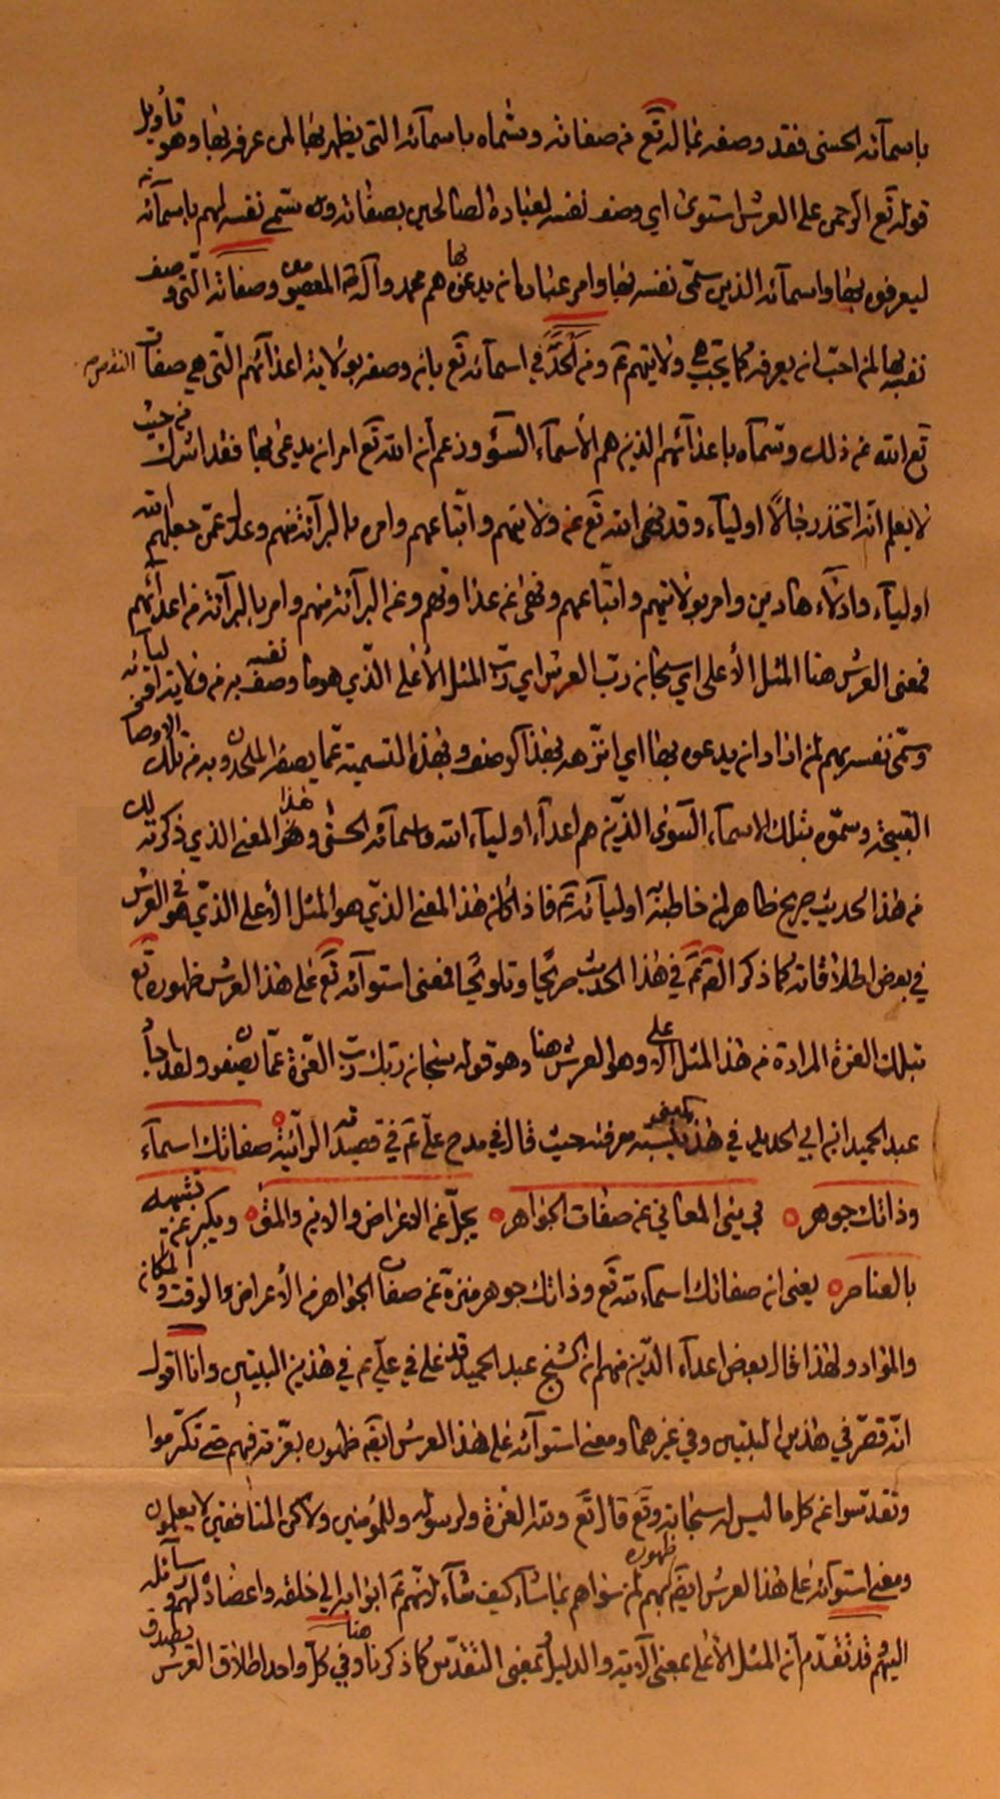 باسمآئه الحسنى فقد وصفه بما له تع من صفاته وسماه باسمآئه التى يظهر بها لمن عرفه بها وهو تأويل
قوله تع الرحمن على العرش استوى اي وصف نفسه لعباده الصالحين بصفاته وسمى نفسه لهم باسمآئه
ليعرفوه بها واسمآئه الذين سمّى نفسه بها وامر عباده ان يدعوه بها هم محمد وآله المعصومون وصفاته التى وصف
نفسه بها لمن احبّ ان يعرفه كما يحب هي ولايتهم ع ومن الحد في اسمآئه تع بان وصفه بولاية اعدآئهم التى هي صفات النقص
تع الله عن ذلك وسمآه باعدآئهم الذين هم الأسمآء السّؤ وزعم أن الله تع امر ان يدعى بها فقد اشرك من حيث
لا يعلم انه اتخذ رجالًا اوليآء وقد نهى الله تع عن ولايتهم واتّباعهم وامر بالبرآئة منهم وعدل عمّن جعلهم الله
اوليآء وادلآء هادين وامر بولايتهم واتباعهم ونهى عن عداوتهم وعن البرآئة منهم وامر بالبرآئة من اعدآئهم
فمعنى العرش هنا المثل الأعلى اي سبحانه ربّ العرش اي ربّ المثل الأعلى الذّي هو ما وصف نفسه به من ولاية اوليآئه
وسمّى نفسه بهم لمن اراد ان يدعوه بها اي انزّهه بهذا الوصف وبهذه التسمية عمّا يصفه الملحدون به من تلك الاوصاف
القبيحة وسمّوه بتلك الاسمآء السّوءى الذّين هم اعدآء اوليآء الله واسمآئه الحسنى وهذا هو المعنى الذي ذكرته لك
من هذا الحديث صريح ظاهر لمن خاطبته اوليآئه ع فاذا كان هذا المعنى الذّي هو المثل الأعلى الذّي هو العرش في
في بعض اطلاقاته كما ذكر الق ع في هذا الحديث صريحًا وتلويحًا فمعنى استوآئه تع على هذا العرش ظهوره تع
بتلك العزة المرادة من هذا المثل الاعلى وهو العرش هنا وهو قوله سبحان ربّك ربّ العزّة عمّا يصفون ولقد اجاد
عبد الحميد ابن ابي الحديد في هذا معرفته حيث قال في مدح عليّ ع في قصيدته الرآئية صفاتك اسمآء
وذاتك جوهر ۰ بريئ المعاني عن صفات الجواهر ۰ يجلّ عن الاعراض والاين والمتى ۰ ويكبر عن تشبيهه
بالعناصر ۰ يعنى ان صفاتك اسماء لله تع وذاتك جوهر منزّة عن صفات الجواهر من الأعراض والوقت والمكان
والمواد ولهذا قال بعض اعدآء الدّين منهم ان الشيخ عبد الحميد قد غلى في عليّ ع في هذين البيتين وانا اقول
انّه قصّر في هذين البيتين وفي غيرهما ومعنى استوآئه على هذا العرش ايضا ظهوره بعزّته فيهم حتى تكرّموا
وتقدّسوا عن كل ما ليس له سبحانه وتع قال تع ولله العزة ولرسوله وللمؤمنين ولاكن المنافقين لا يعلمون
ومعنى استوآئه على هذا العرش ايضا ظهوره بهم لمن سواهم بما شآء كيف شآء لانّهم ع ابوابه الى خلقه واعضاد لهم وسآئله
اليهم قد تقدّم أنّ المثل الأعلى بمعنى الآية والدليل وبمعنى التقدّس كما ذكرنا هنا وفي كلّ واحد اطلاق العرش يصدق